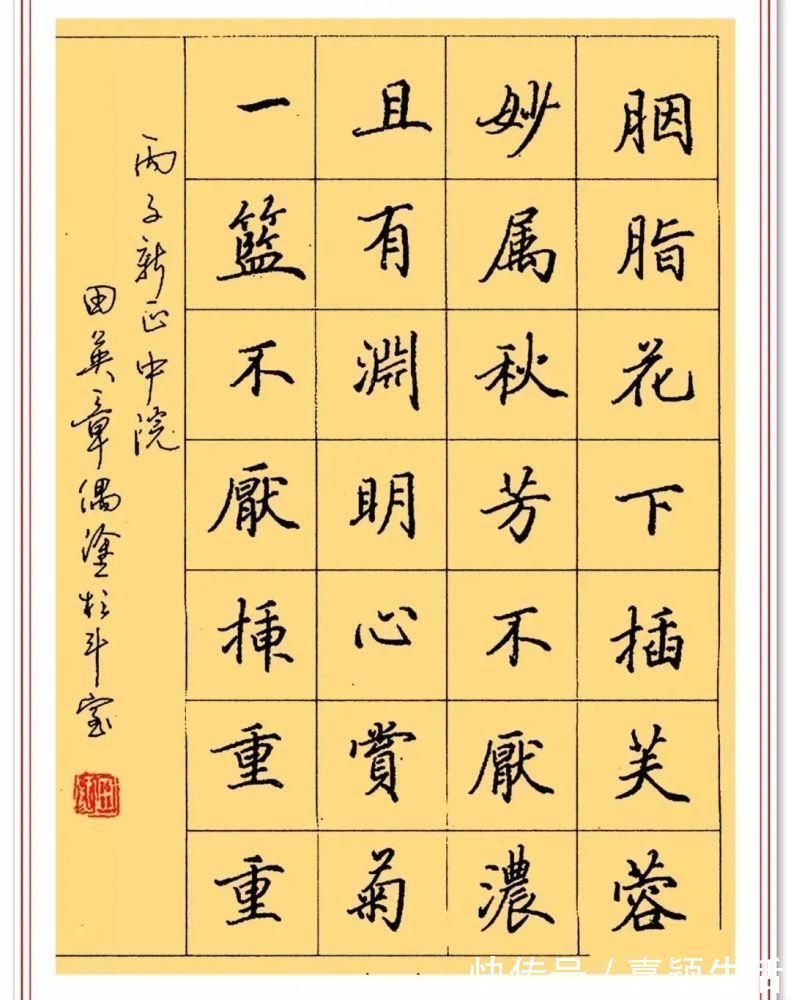 胭脂花下插芙蓉
妙属秋芳不厭濃
且有淵明心賞菊
一籃不厭挿重重
丙子新正中院
田英章偶塗於斗室
快传号 / 颖生活